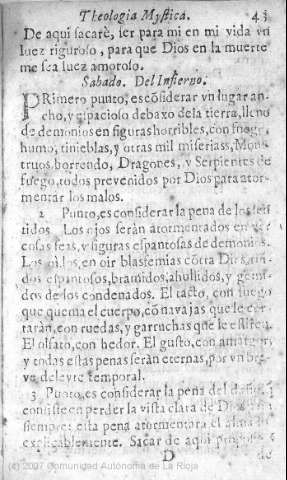 Theologia Mystica. 43
De aqui sacarè, ser para mi en mi vida vn
luez riguroso, para que Dios en la muerte
me sea luez amoroso.
Sabado. Del Infierno.
PRimero punto, es cõsiderar vn lugar an-
cho, y espacioso debaxo de la tierra, lleno
de demonios en figuras horribles, con fuego,
humo, tinieblas, y otras mil miserias, Mons
truos, horrendo, Dragones, y Serpientes de
fuego, todos prevenidos por Dios para ator-
mentar los malos.
2 Punto, es considerar la pena de los sen
tidos. Los ojos serán atormentados en
cosas feas, y figuras espantosas de demonios.
Los oidos, en oir blasfemias cõtra Dios,
dos espantosos, bramidos, ahullidos, y gemi
dos de los condenados. El tacto, con fuego
que quema el cuerpo, cõ navajas que le cor
tarán, con ruedas, y garruchas que le
El olfato, con hedor. El gusto, con amargor
y todas estas penas serán eternas, por vn bre
ve deleyte temporal.
3 Punto, es considerar la pena del daño,
consiste en perder la vista clara de Dios
siempre: esta pena atormentará el alma in
explicablemente. Sacar de aqui proposito
D de
(c) 2007 Comunidad Autónoma de La Rioja